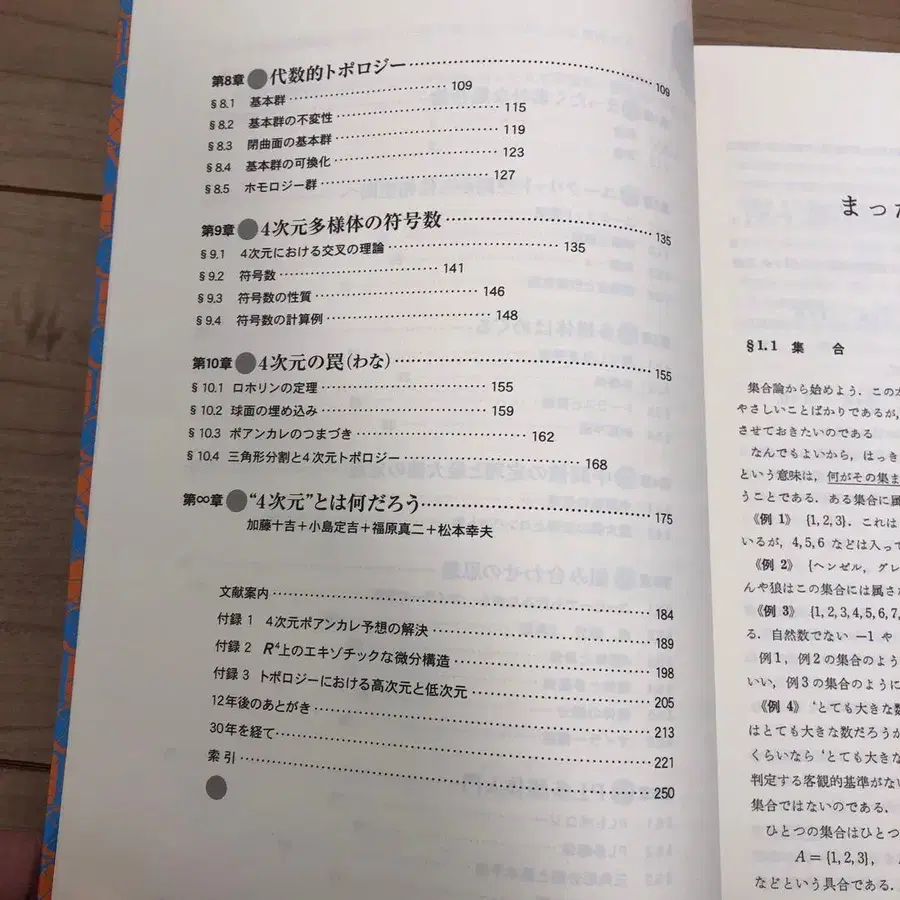 第8章 ●代数的トポロジー……109
§8.1 基本群……109
§8.2 基本群の不変性……115
§8.3 閉曲面の基本群……119
§8.4 基本群の可換化……123
§8.5 ホモロジー群……127
第9章 ●4次元多様体の符号数……135
§9.1 4次元における交叉の理論……135
§9.2 符号数……141
§9.3 符号数の性質……146
§9.4 符号数の計算例……148
第10章 ●4次元の罠(わな)……155
§10.1 ロホリンの定理……155
§10.2 球面の埋め込み……159
§10.3 ポアンカレのつまづき……162
§10.4 三角形分割と4次元トポロジー……168
第∞章 ●“4次元”とは何だろう……175
加藤十吉+小島定吉+福原真二+松本幸夫
文献案内……184
付録1 4次元ポアンカレ予想の解決……189
付録2 R⁴上のエキゾチックな微分構造……198
付録3 トポロジーにおける高次元と低次元……205
12年後のあとがき……213
30年を経て……221
索引……250
まった
§1.1 集 合
集合論から始めよう.この
やさしいことばかりであるが,
させておきたいのである
なんでもよいから,はっき
という意味は,何がその集ま
うことである.ある集合に属
《例1》 {1,2,3}.これは
いるが,4,5,6 などは入って
《例2》 {ヘンゼル,グレ
んや狼はこの集合には属さ
《例3》 {1,2,3,4,5,6,7,
る.自然数でない −1 や
例1,例2の集合のよう
いい,例3の集合のように
《例4》 ‘とても大きな数
はとても大きな数だろうか
くらいなら ‘とても大きな
判定する客観的基準がない
集合ではないのである.
ひとつの集合はひとつ
A={1,2,3},
などという具合である.